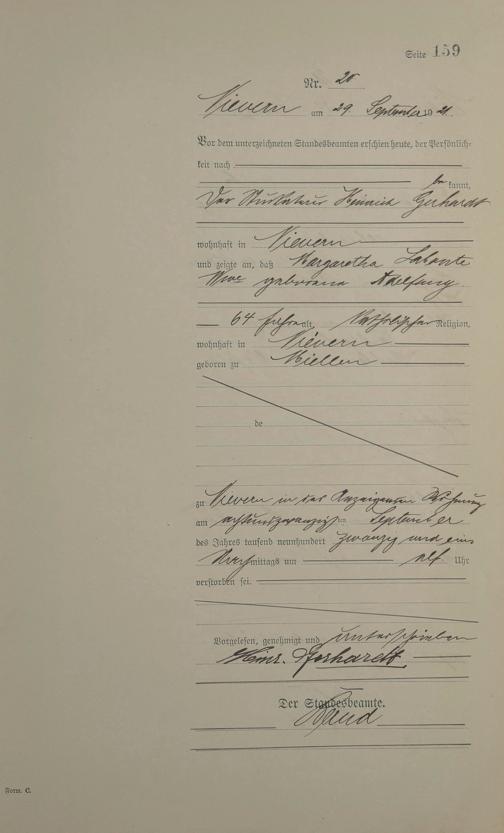 Seite 159
Nr. 20
Nievern am 29 September 1921.
Vor dem unterzeichneten Standesbeamten erschien heute, der Persönlich-
keit nach
be kannt,
Der Heinrich Gerhardt
wohnhaft in Nievern
und zeigte an, daß Margaretha Labonte
Wwe geborene
64 Jahre alt, Katholischer Religion,
wohnhaft in Nievern
geboren zu Miellen
de
zu Nievern in des Anzeigenden Wohnung
am achtundzwanzigsten September
des Jahres tausend neunhundert zwanzig und eins
Nachmittags um elf Uhr
verstorben sei.
Vorgelesen, genehmigt und unterschrieben
Heinr. Gerhardt.
Der Standesbeamte.
Form. C.